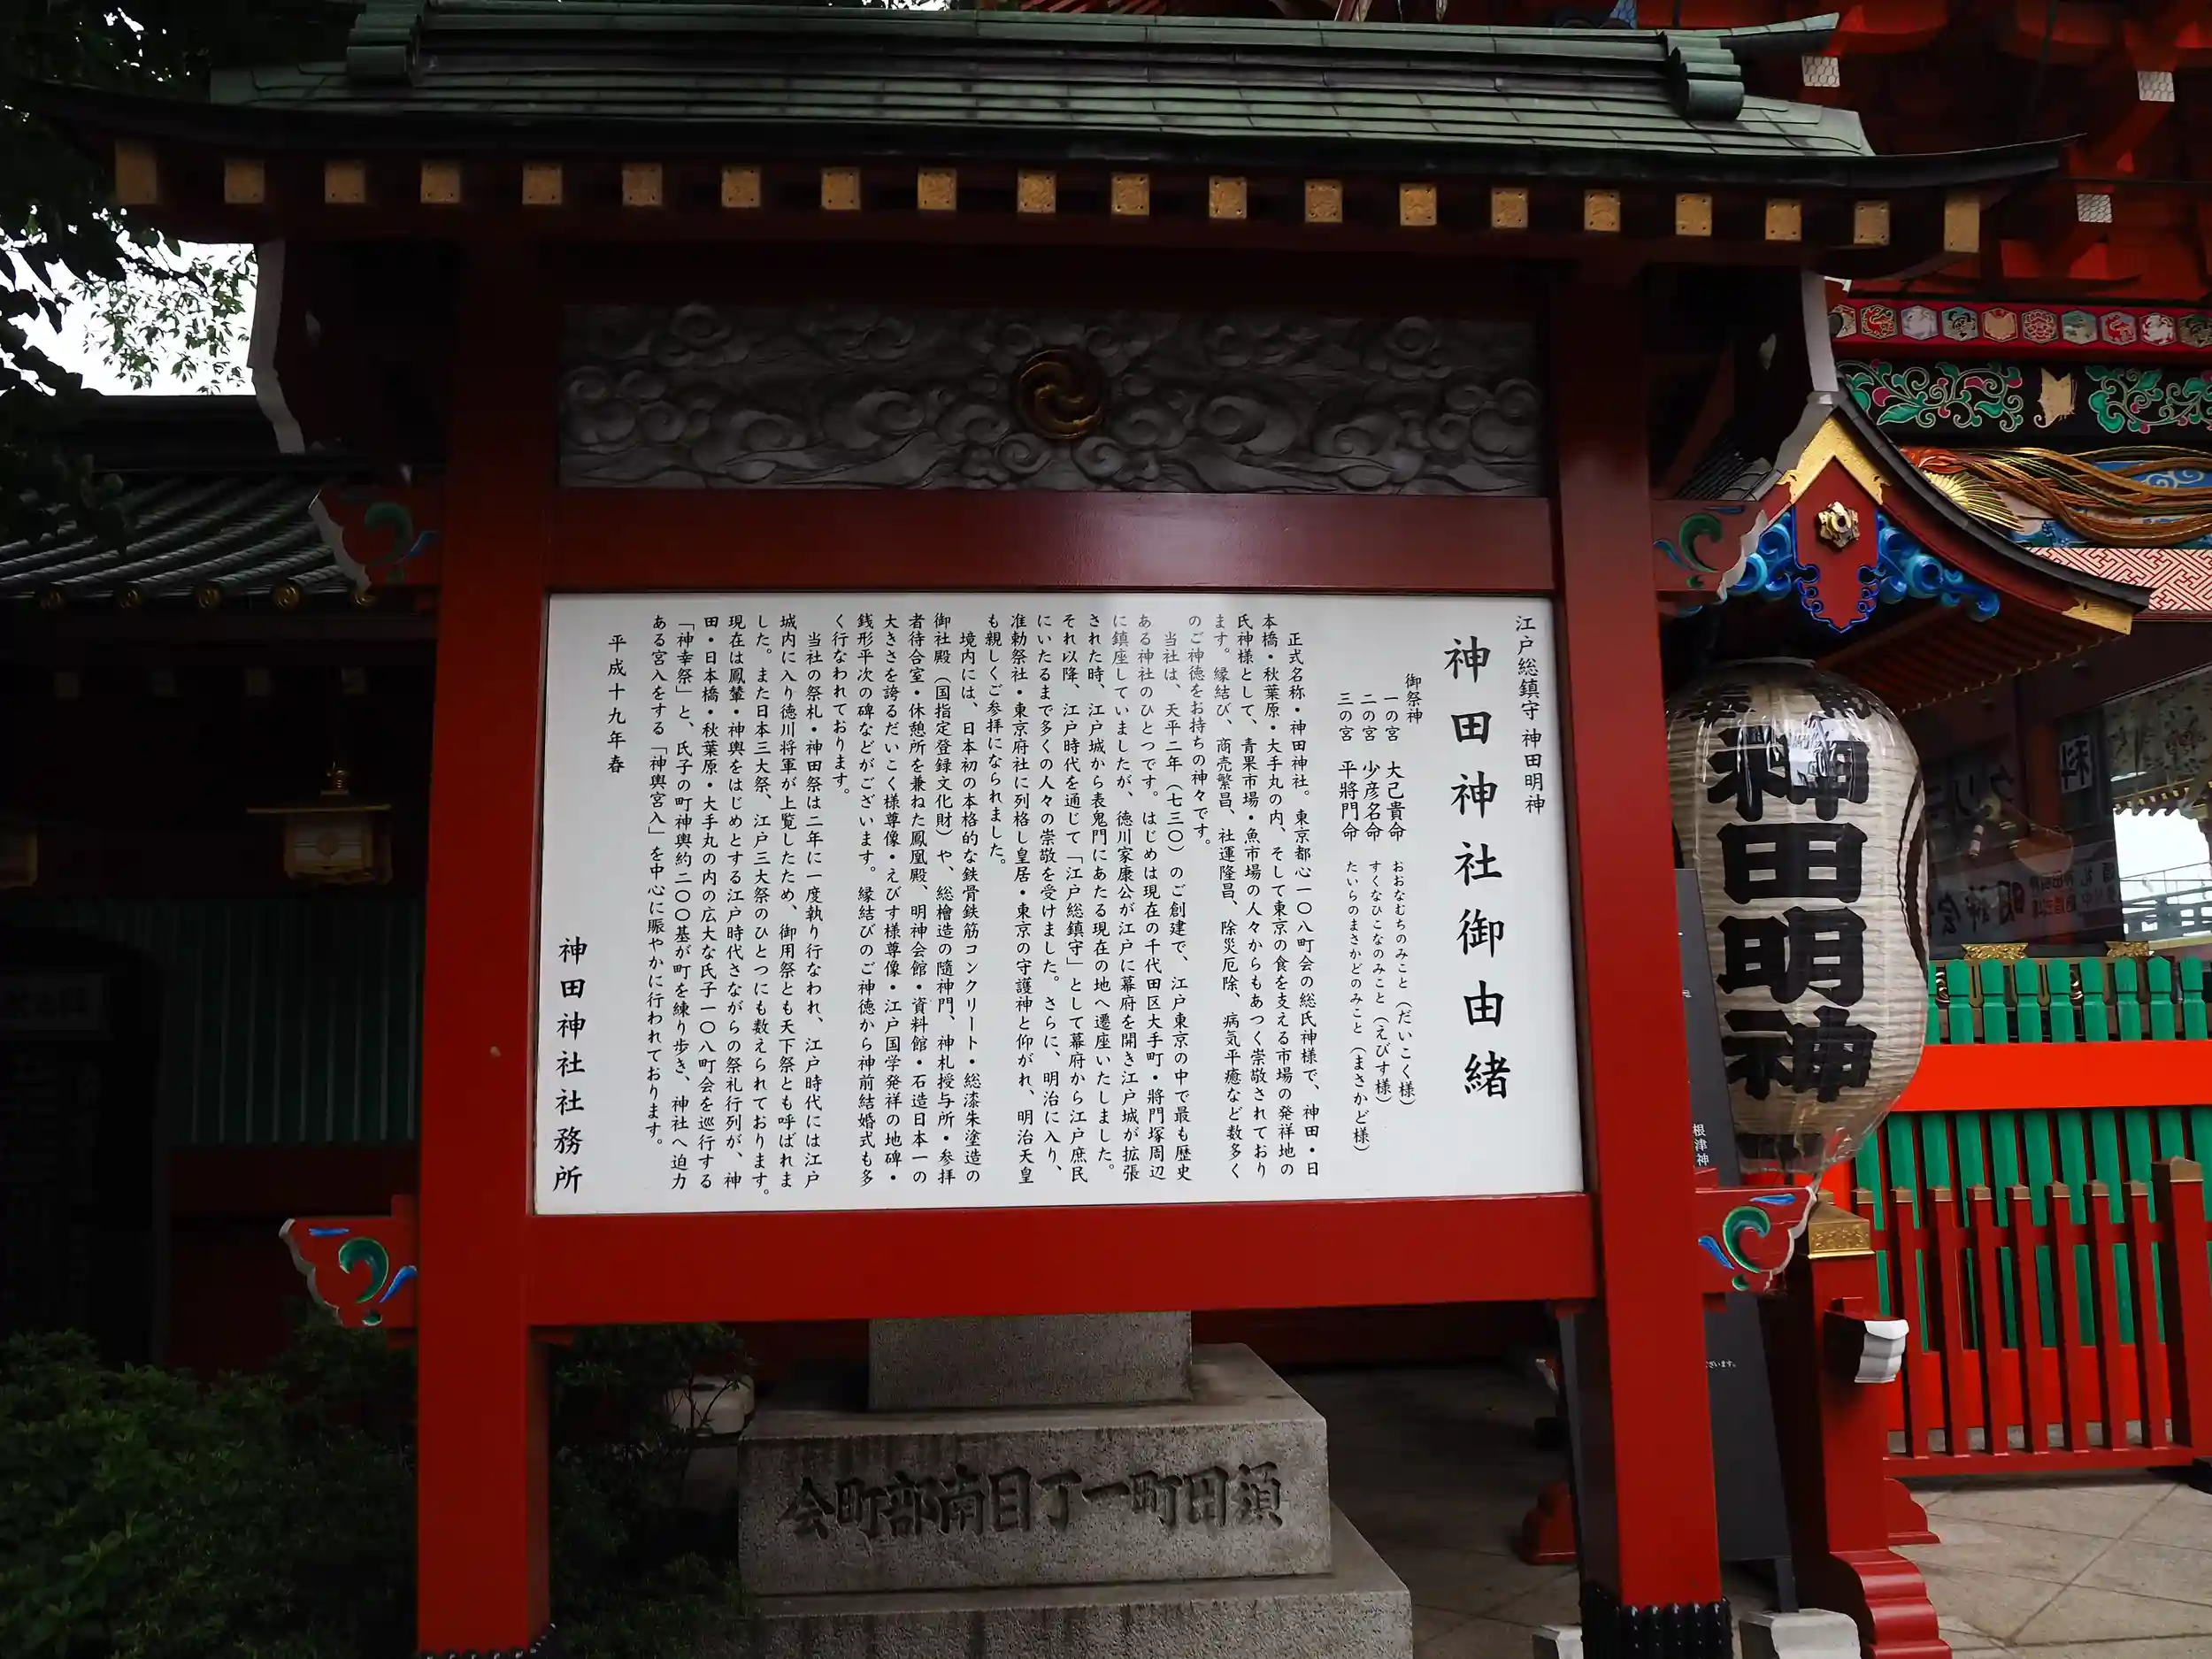 江戸総鎮守 神田明神
神田神社御由緒
御祭神
一の宮 大己貴命 おおなむちのみこと（だいこく様）
二の宮 少彦名命 すくなひこなのみこと（えびす様）
三の宮 平將門命 たいらのまさかどのみこと（まさかど様）
正式名称・神田神社。東京都心一〇八町会の総氏神様で、神田・日
本橋・秋葉原・大手丸の内、そして東京の食を支える市場の発祥地の
氏神様として、青果市場・魚市場の人々からもあつく崇敬されており
ます。縁結び、商売繁昌、社運隆昌、除災厄除、病気平癒など数多く
のご神徳をお持ちの神々です。
当社は、天平二年（七三〇）のご創建で、江戸東京の中で最も歴史
ある神社のひとつです。はじめは現在の千代田区大手町・將門塚周辺
に鎮座していましたが、徳川家康公が江戸に幕府を開き江戸城が拡張
された時、江戸城から表鬼門にあたる現在の地へ遷座いたしました。
それ以降、江戸時代を通じて「江戸総鎮守」として幕府から江戸庶民
にいたるまで多くの人々の崇敬を受けました。さらに、明治に入り、
准勅祭社・東京府社に列格し皇居・東京の守護神と仰がれ、明治天皇
も親しくご参拝になられました。
境内には、日本初の本格的な鉄骨鉄筋コンクリート・総漆朱塗造の
御社殿（国指定登録文化財）や、総檜造の隨神門、神札授与所・参拝
者待合室・休憩所を兼ねた鳳凰殿、明神会館・資料館・石造日本一の
大きさを誇るだいこく様尊像・えびす様尊像・江戸国学発祥の地碑・
銭形平次の碑などがございます。縁結びのご神徳から神前結婚式も多
く行なわれております。
当社の祭札・神田祭は二年に一度執り行なわれ、江戸時代には江戸
城内に入り徳川将軍が上覧したため、御用祭とも天下祭とも呼ばれま
した。また日本三大祭、江戸三大祭のひとつにも数えられております。
現在は鳳輦・神輿をはじめとする江戸時代さながらの祭礼行列が、神
田・日本橋・秋葉原・大手丸の内の広大な氏子一〇八町会を巡行する
「神幸祭」と、氏子の町神輿約二〇〇基が町を練り歩き、神社へ迫力
ある宮入をする「神輿宮入」を中心に賑やかに行われております。
平成十九年春
神田神社社務所
神田明神
根津神
ございます。
会町部南目丁一町田須